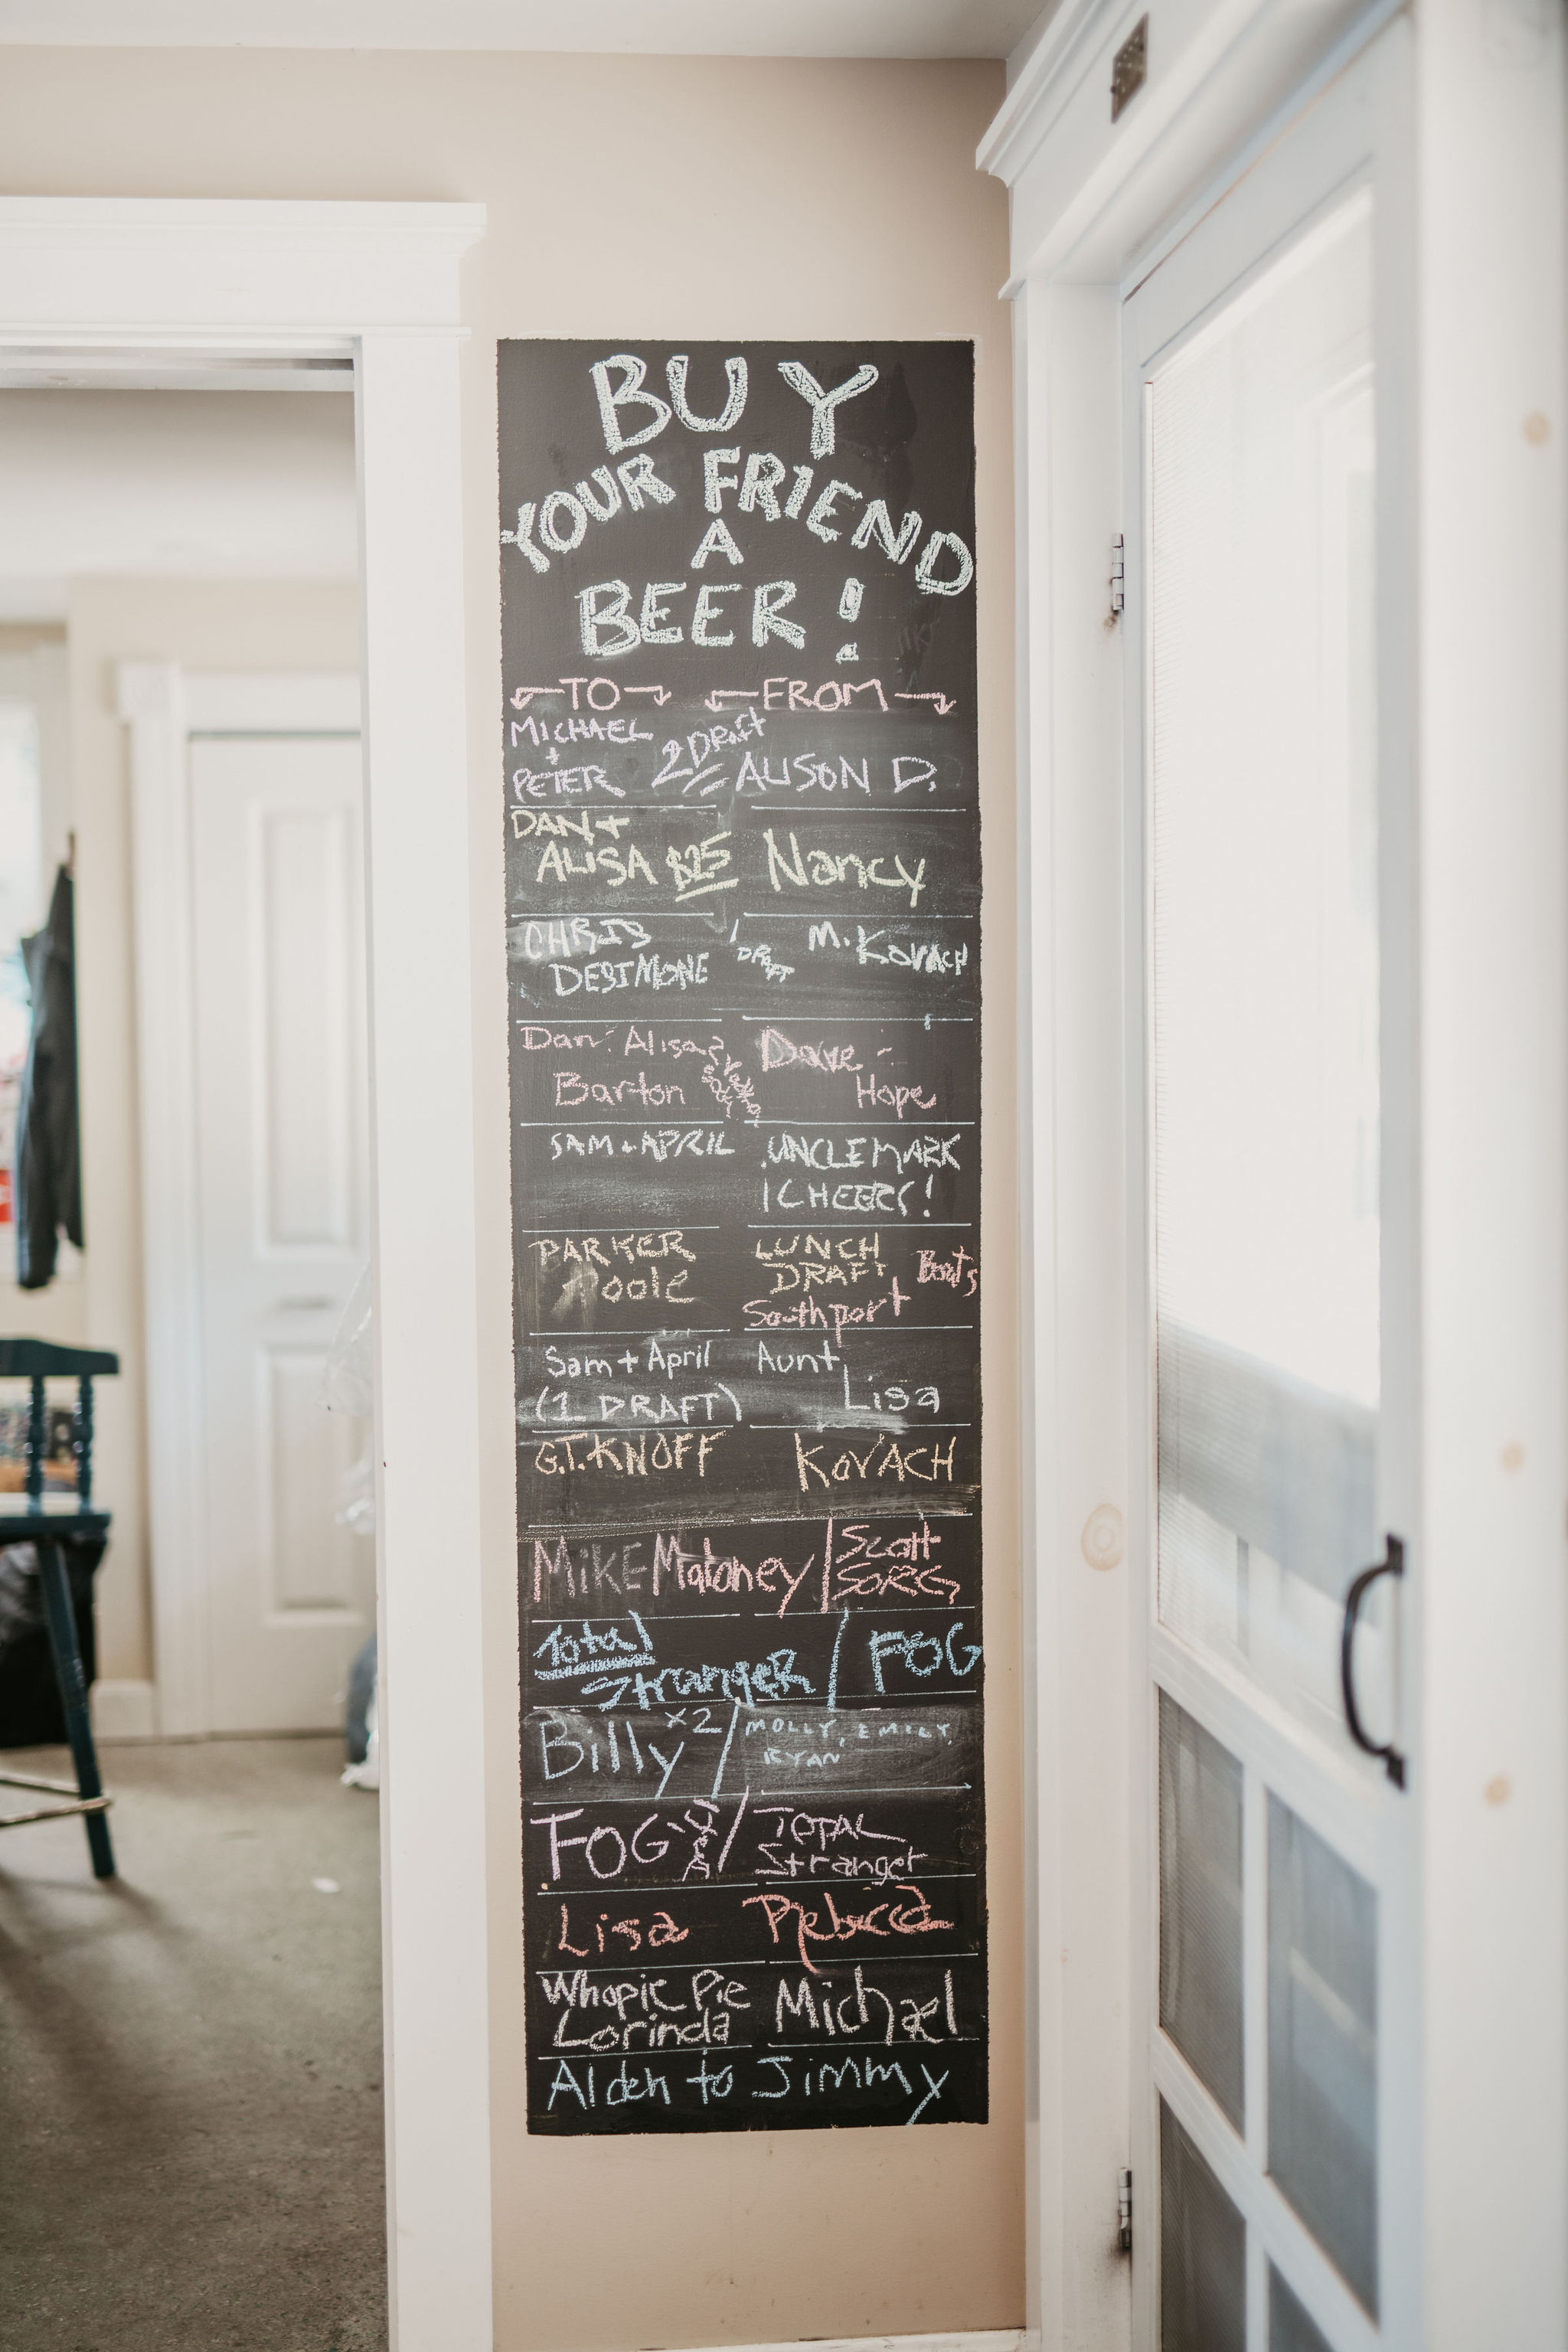 BUY
YOUR FRIEND
A
BEER!
TO FROM
MICHAEL
+
PETER 2 Draft ALISON D.
DAN +
ALISA $25 Nancy
CHRIS
DESIMONE 1 DRAFT M. KOVACH
Dan Alisa
Barton Dave
Hope
SAM + APRIL UNCLE MARK
CHEERS!
PARKER
Poole LUNCH
DRAFT Boats
Southport
Sam + April Aunt
(1 DRAFT) Lisa
G.T. KNOFF KOVACH
MIKE Maloney / Scott
SORG
Total
Stranger / FOG
Billy x2 / MOLLY, EMILY,
RYAN
FOG / TOTAL
Stranger
Lisa
Whopie Pie
Lorinda Michael
Alden to Jimmy